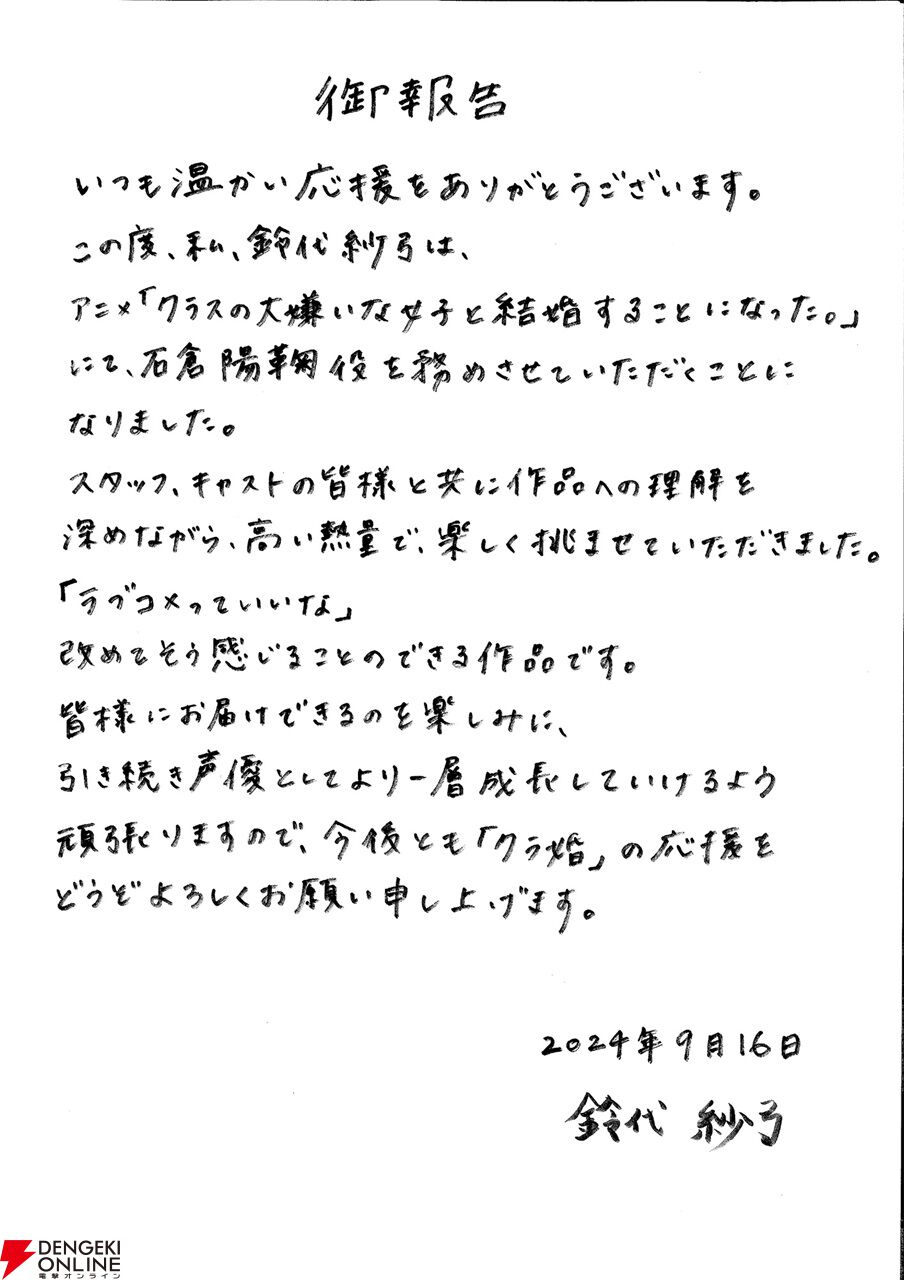 御報告
いつも温かい応援をありがとうございます。
この度、私、鈴代紗弓は、
アニメ「クラスの大嫌いな女子と結婚することになった。」
にて、石倉陽鞠役を務めさせていただくことに
なりました。
スタッフ、キャストの皆様と共に作品への理解を
深めながら、高い熱量で、楽しく挑ませていただきました。
「ラブコメっていいな」
改めてそう感じることのできる作品です。
皆様にお届けできるのを楽しみに、
引き続き声優としてより一層成長していけるよう
頑張りますので、今後とも「クラ婚」の応援を
どうぞよろしくお願い申し上げます。
2024年9月16日
鈴代 紗弓
DENGEKI
ONLINE
電撃オンライン